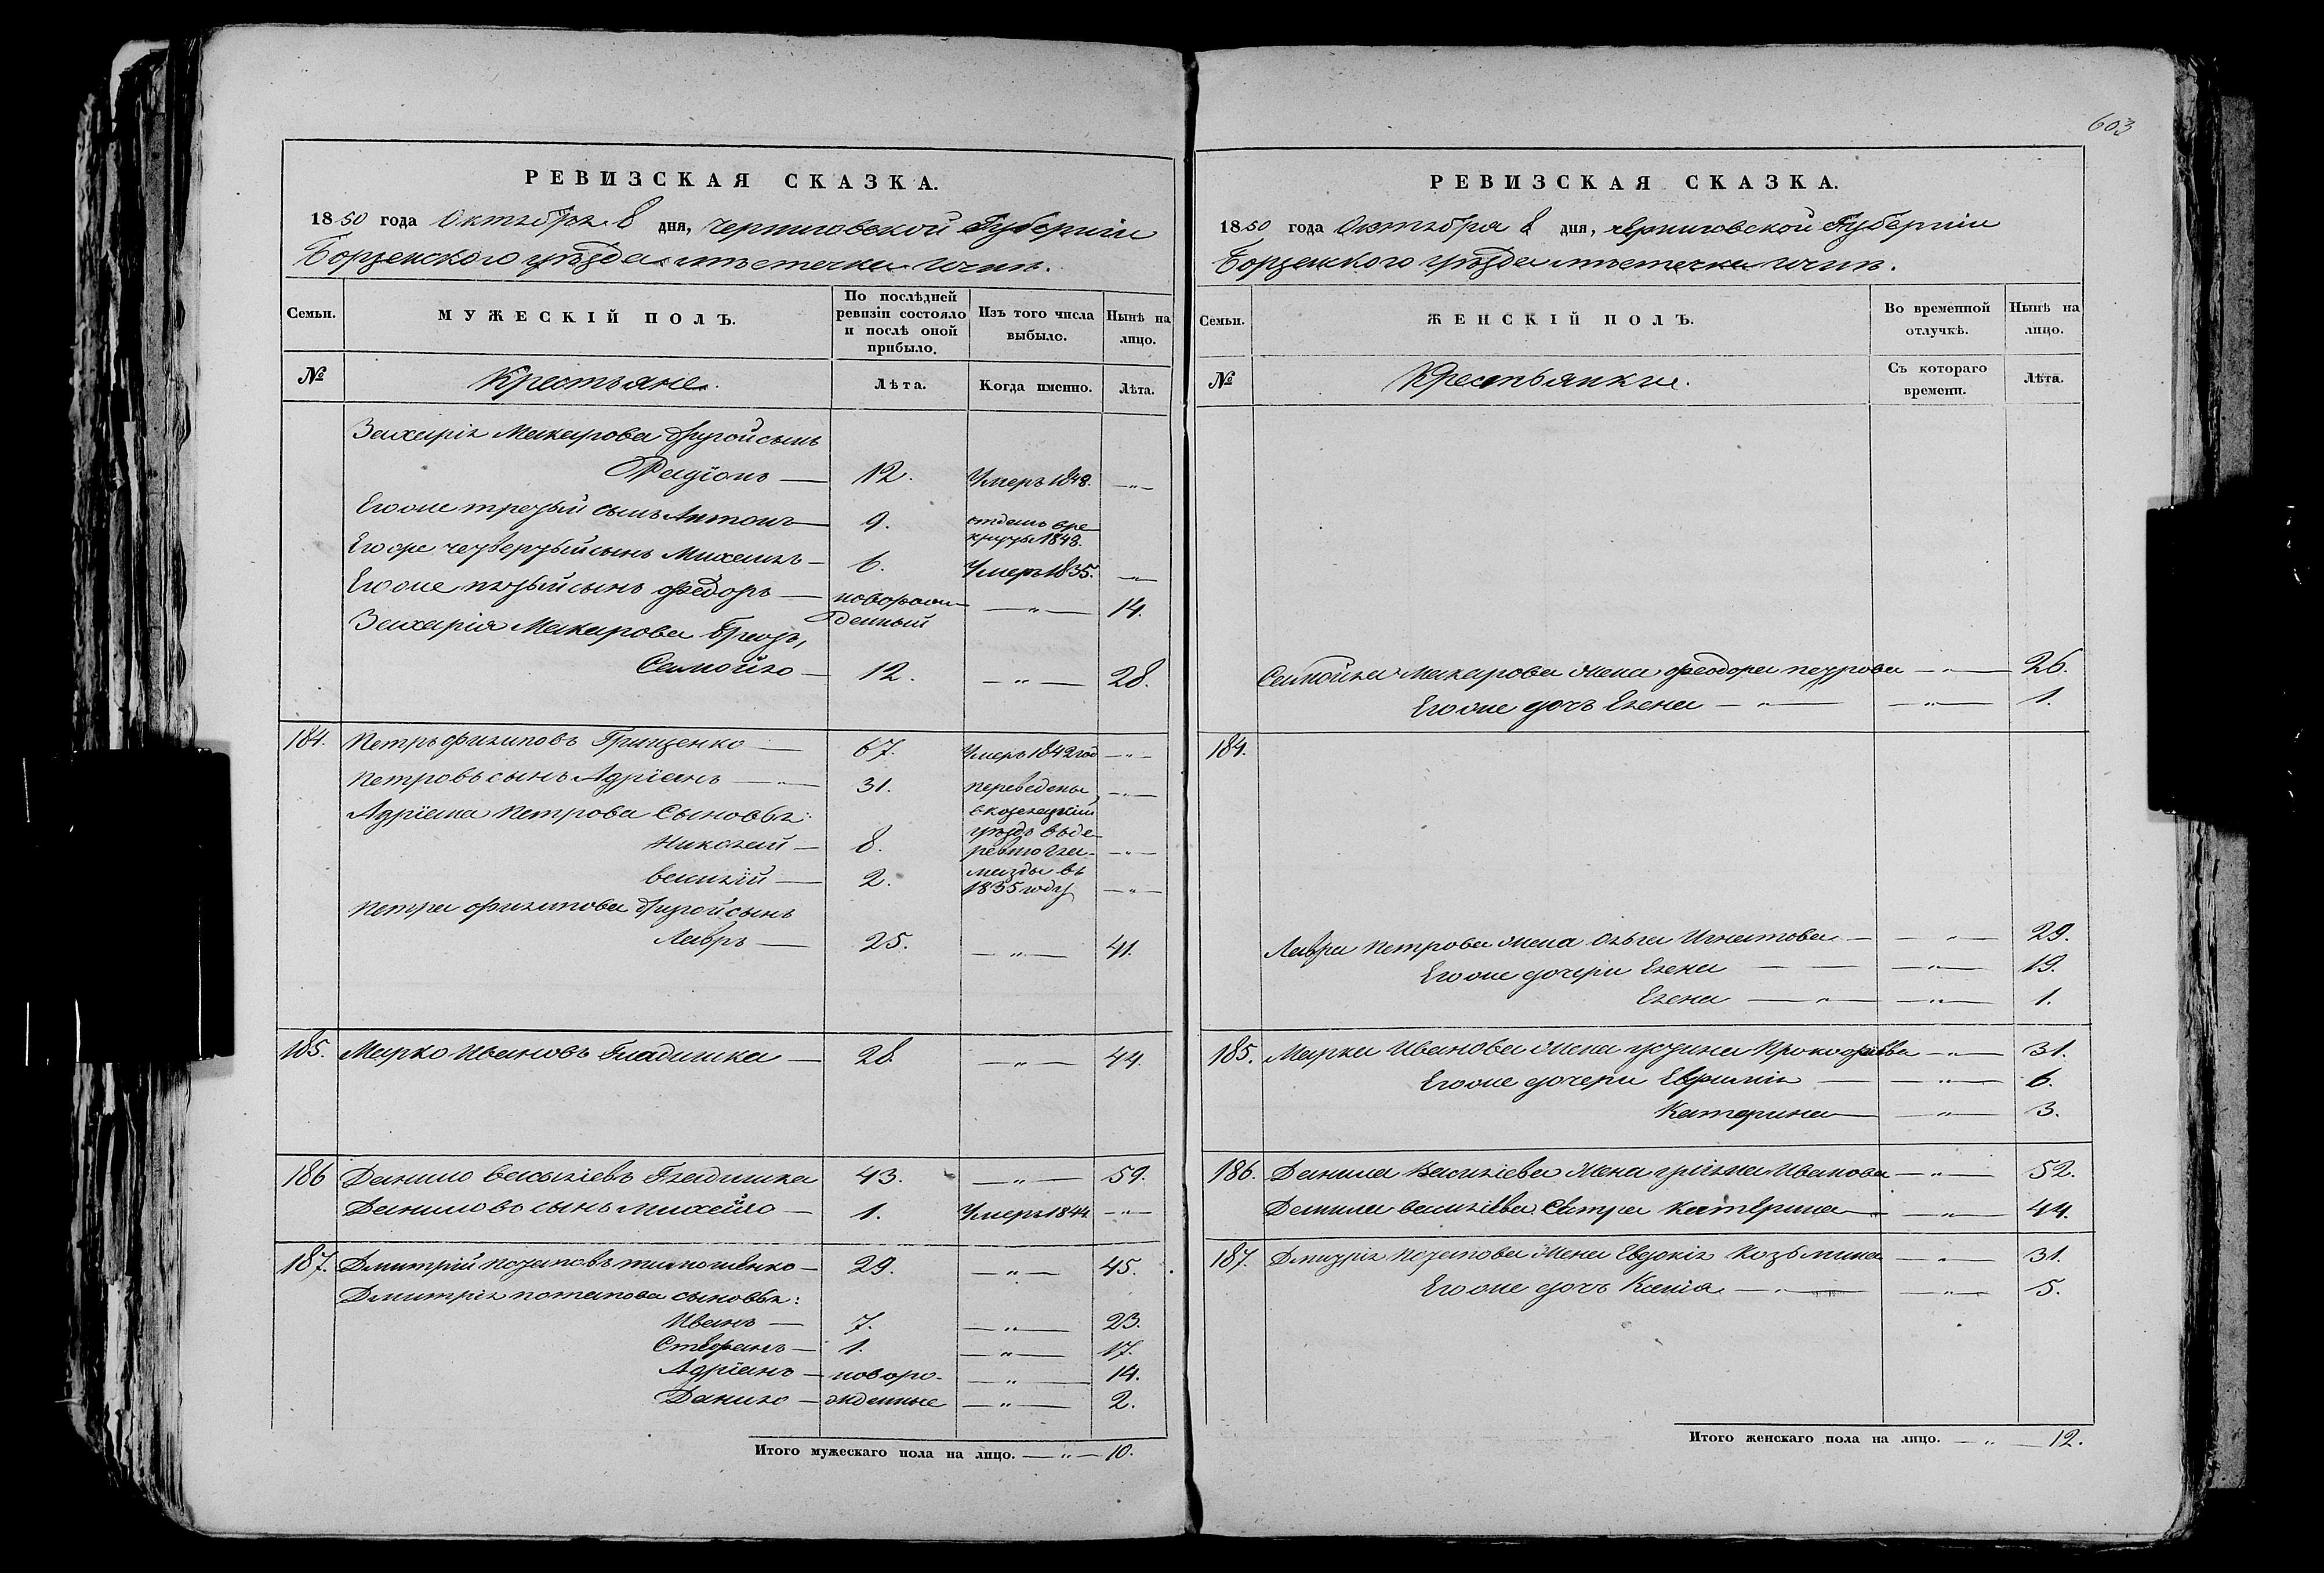 603
РЕВИЗСКАЯ СКАЗКА.
1850 года Октября 8 дня, Черниговской Губерніи
Борзенского уѣзда мѣстечка Ични.
Семьи.
МУЖЕСКІЙ ПОЛЪ.
По послѣдней ревизіи состояло и послѣ оной прибыло.
Изъ того числа выбыло.
Нынѣ на лицо.
№
Крестьяне.
Лѣта.
Когда именно.
Лѣта.
Захарія Макарова другой сынъ
Родіонъ — 12. Умеръ 1848. — " —
Его же третьій сынъ Антонъ — 9. отданъ в ре-
круты 1848.
Его же четвертый сынъ Михаилъ — 6. Умеръ 1835. — " —
Его же пятый сынъ Федоръ — новорож- — " — 14.
денный
Захарія Макарова братъ,
Самойло — 12. — " — 28.
184. Петръ Филиповъ Грищенко — 67. Умеръ 1842 год — " —
Петровъ сынъ Адріанъ — " — 31. переведены — " —
Адріана Петрова Сыновья: в козелецкій
уѣздъ въ де-
Николай — 8. ревню — " —
Василій — 2. въ
1835 году — " —
Петра Филипова другой сынъ
Лавръ — 25. — " — 41.
185. Марко Ивановъ Гладишка — 28. — " — 44.
186 Данило Васыліевъ Гладишка 43. — " — 59.
Данилово сынъ Михайло — 1. Умеръ 1844 — " —
187. Дмитрій Потаповъ Тимошенко — 29. — " — 45.
Дмитрія Потапова сыновья:
Иванъ — 7. — " — 23.
Стефанъ — 1. — " — 17.
Адріанъ — новоро- — " — 14.
Данило — жденные — " — 2.
Итого мужескаго пола на лицо. — " — 10.
РЕВИЗСКАЯ СКАЗКА.
1850 года Октября 8 дня, Черниговской Губерніи
Борзенского уѣзда мѣстечка Ични.
Семьи.
ЖЕНСКІЙ ПОЛЪ.
Во временной отлучкѣ.
Нынѣ на лицо.
№
Крестьянки.
Съ котораго времени.
Лѣта.
Самойла Макарова жена Феодора Петрова — " — 26.
Его же дочь Елена — " — — " — 1.
184.
Лавра Петрова жена Ольга Игнатова — — " — 29.
Его же дочери Елена — — — " — 19.
Елена — " — — " — 1.
185. Марка Иванова жена Прокофіева — " — 31.
Его же дочери Евфимія — — " — 6.
Катерина — — " — 3.
186. Данила Василіева жена Иванова — " — 52.
Данила Василіева Сестра Катерина — — " — 44.
187. Дмитрія Потапова жена Евдокія Козьмина — " — 31.
Его же дочь Ксенія — " — — " — 5.
Итого женскаго пола на лицо. — " — 12.